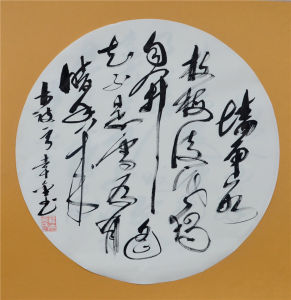 墙角数
枝梅凌寒獨
自开遥
知不是雪为有
暗香来